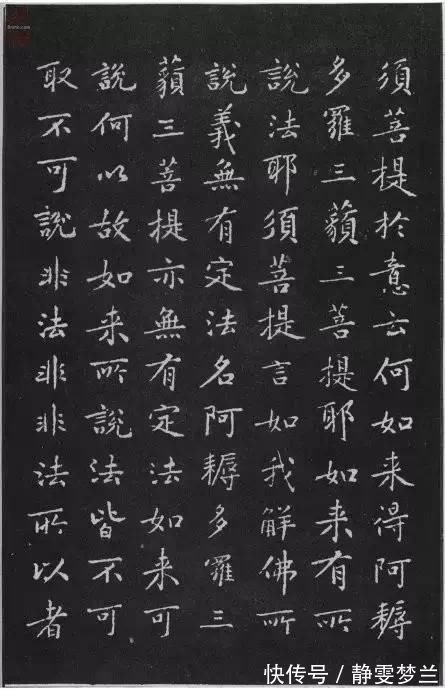 須菩提於意云何如来得阿耨
多羅三藐三菩提耶如来有所
說法耶須菩提言如我解佛所
說義無有定法名阿耨多羅三
藐三菩提亦無有定法如来可
說何以故如来所說法皆不可
取不可說非法非非法所以者
快传号 / 静雯梦兰